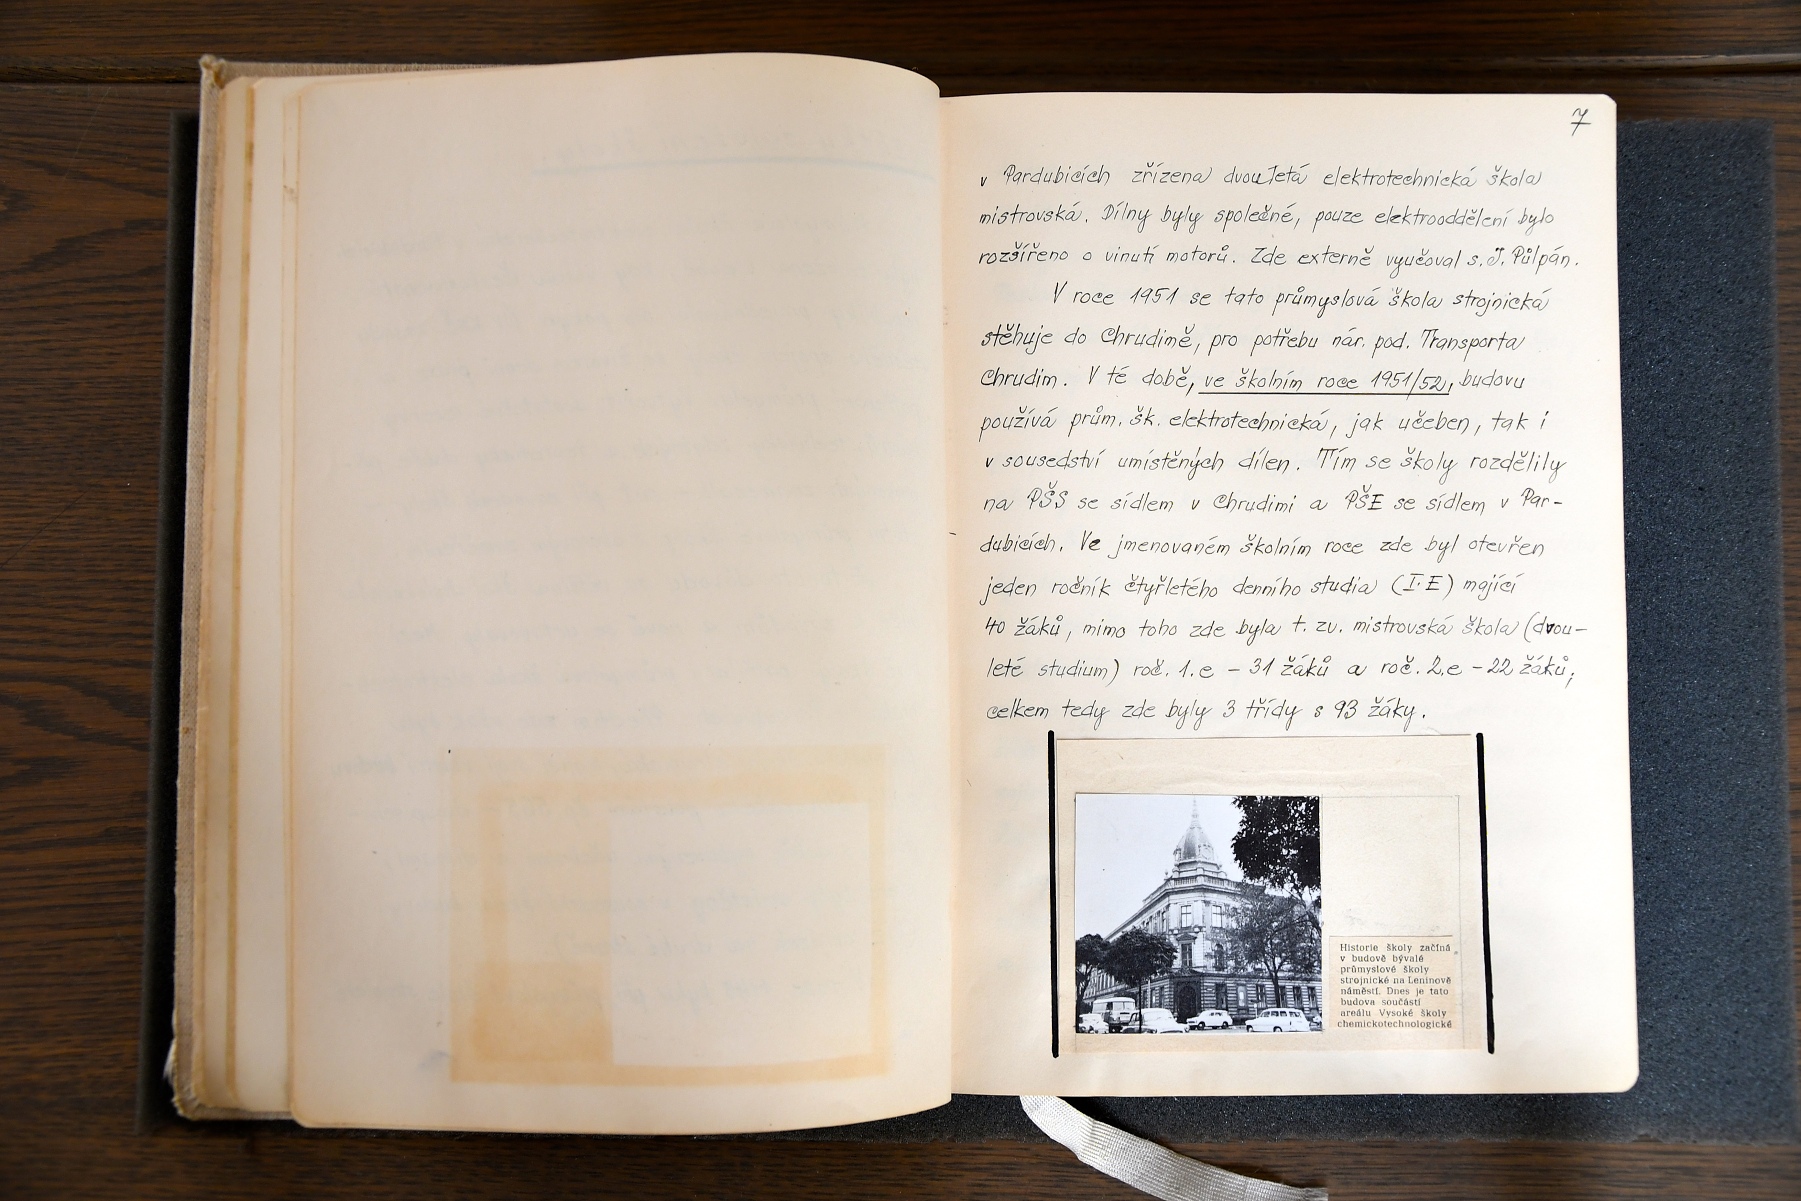 7
v Pardubicích zřízena dvouletá elektrotechnická škola
mistrovská. Dílny byly společné, pouze elektrooddělení bylo
rozšířeno o vinutí motorů. Zde externě vyučoval s. J. Půlpán.
V roce 1951 se tato průmyslová škola strojnická
stěhuje do Chrudimě, pro potřebu nár. pod. Transporta
Chrudim. V té době, ve školním roce 1951/52, budovu
používá prům. šk. elektrotechnická, jak učeben, tak i
v sousedství umístěných dílen. Tím se školy rozdělily
na PŠS se sídlem v Chrudimi a PŠE se sídlem v Par-
dubicích. Ve jmenovaném školním roce zde byl otevřen
jeden ročník čtyřletého denního studia (I.E) mající
40 žáků, mimo toho zde byla t. zv. mistrovská škola (dvou-
leté studium) roč. 1.e - 31 žáků a roč. 2.e - 22 žáků,
celkem tedy zde byly 3 třídy s 93 žáky.
Historie školy začíná
v budově bývalé
průmyslové školy
strojnické na Leninově
náměstí. Dnes je tato
budova součástí
areálu Vysoké školy
chemickotechnologické